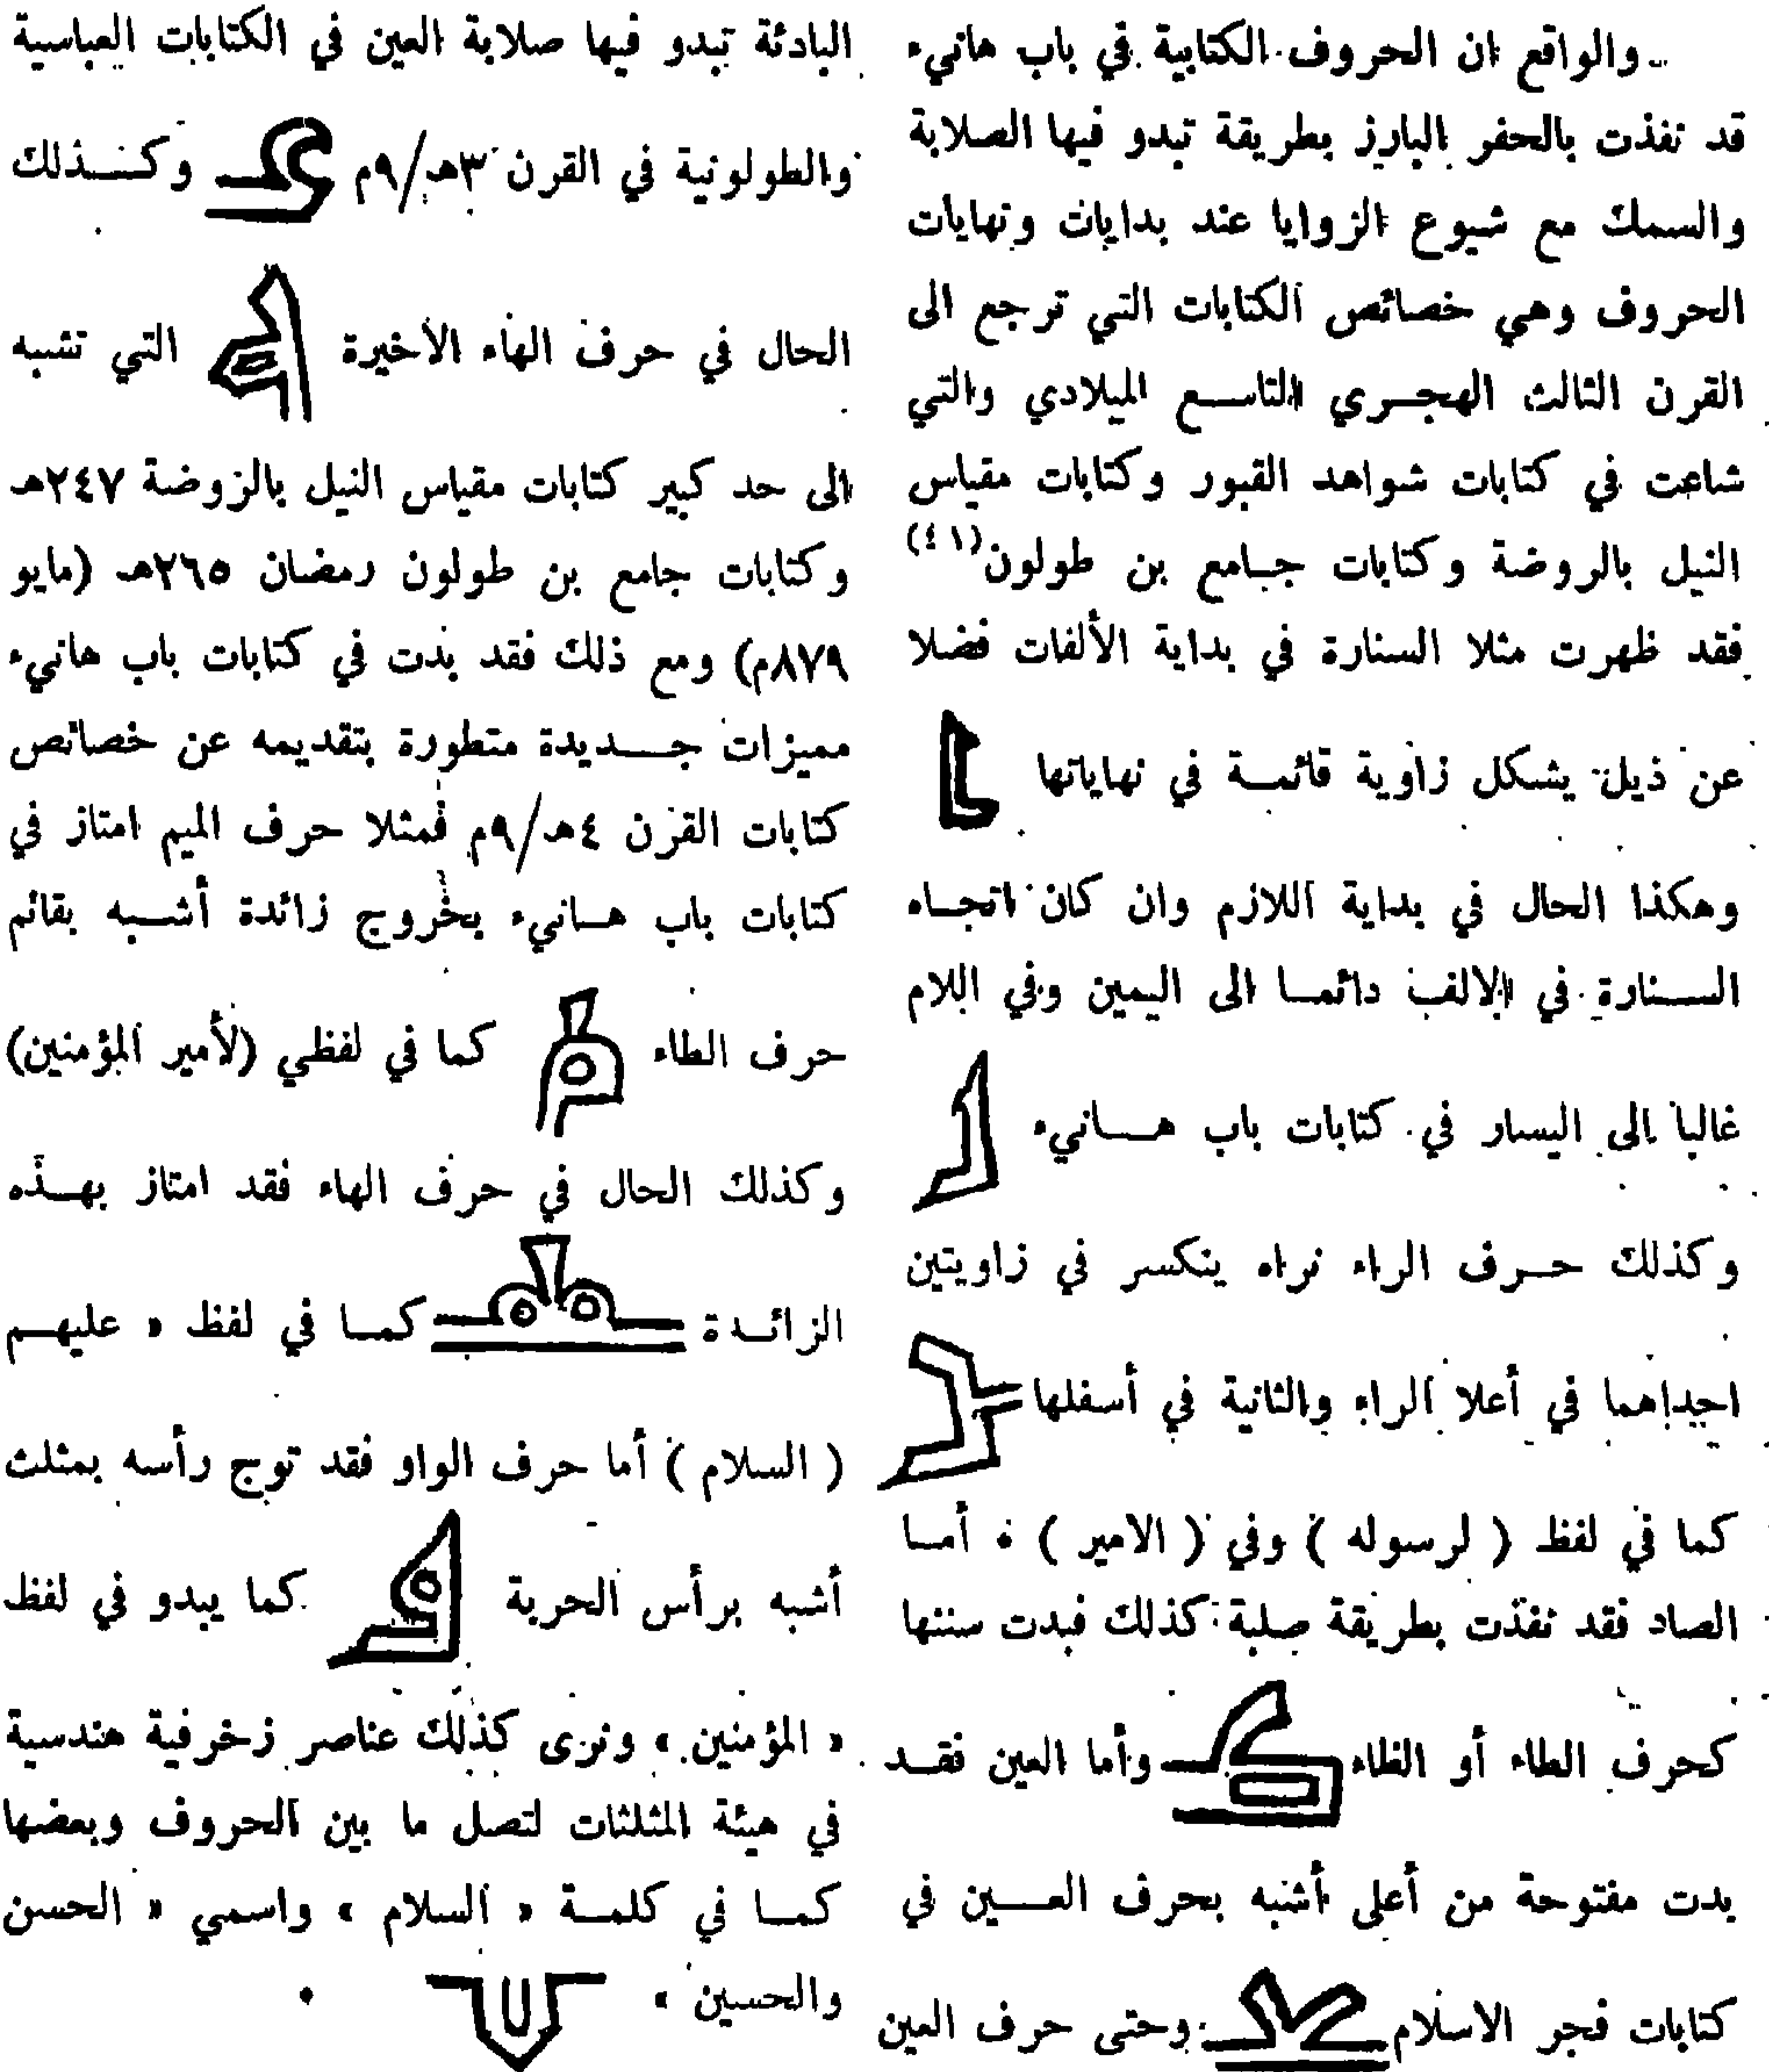 والواقع ان الحروف الكتابية في باب هانيء
قد نفذت بالحفر البارز بطريقة تبدو فيها الصلابة
والسمك مع شيوع الزوايا عند بدايات ونهايات
الحروف وهي خصائص الكتابات التي ترجع الى
القرن الثالث الهجري التاسع الميلادي والتي
شاعت في كتابات شواهد القبور وكتابات مقياس
النيل بالروضة وكتابات جامع بن طولون(٤١)
فقد ظهرت مثلا السنارة في بداية الألفات فضلا
عن ذيل يشكل زاوية قائمة في نهاياتها
وهكذا الحال في بداية اللازم وان كان اتجاه
السنارة في الالف دائما الى اليمين وفي اللام
غالبا الى اليسار في كتابات باب هانيء
وكذلك حرف الراء نراه ينكسر في زاويتين
احداهما في أعلا الراء والثانية في أسفلها
كما في لفظ ( لرسوله ) وفي ( الامير ) ، أما
الصاد فقد نفذت بطريقة صلبة كذلك فبدت سننها
كحرف الطاء أو الظاء وأما العين فقد
بدت مفتوحة من أعلى أشبه بحرف العين في
كتابات فجر الاسلام وحتى حرف العين
البادئة تبدو فيها صلابة العين في الكتابات العباسية
والطولونية في القرن ٣هـ/٩م وكذلك
الحال في حرف الهاء الأخيرة التي تشبه
الى حد كبير كتابات مقياس النيل بالروضة ٢٤٧هـ
وكتابات جامع بن طولون رمضان ٢٦٥هـ (مايو
٨٧٩م) ومع ذلك فقد بدت في كتابات باب هانيء
مميزات جديدة متطورة بتقديمه عن خصائص
كتابات القرن ٤هـ/٩م فمثلا حرف الميم امتاز في
كتابات باب هانيء بخروج زائدة أشبه بقائم
حرف الطاء كما في لفظي (لأمير المؤمنين)
وكذلك الحال في حرف الهاء فقد امتاز بهذه
الزائدة كما في لفظ « عليهم
( السلام ) أما حرف الواو فقد توج رأسه بمثلث
أشبه برأس الحربة كما يبدو في لفظ
« المؤمنين » ونرى كذلك عناصر زخرفية هندسية
في هيئة المثلثات لتصل ما بين الحروف وبعضها
كما في كلمة « السلام » واسمي « الحسن
والحسين » .